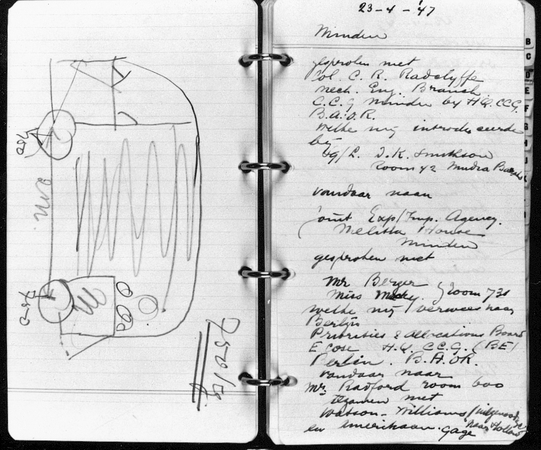 750
2 m.
750
M
2500 kg
23-4-'47
Minden
gesproken met
Col. C. R. Radclyffe
Mech. Eng. Branch
C.C.G Minden by HQ. CCG.
B.A.O.R.
welke mij introduceerde
bij
J.K. Smithson
Room 42 Mudra
vandaar naar
Joint Exp/Imp. Agency.
Melitta House
Minden
gesproken met
Mr Berger
Miss room 731
welke mij verwees naar
Berlijn
Priorities & Allocations Board
H.Q. C.C.G. (BE)
Berlin. B.A.O.R.
vandaar naar
Mr. Radford room 600
tezamen met
Watson-Williams
naar Holland
en Amerikaan. Gage
B
C
D
E
F